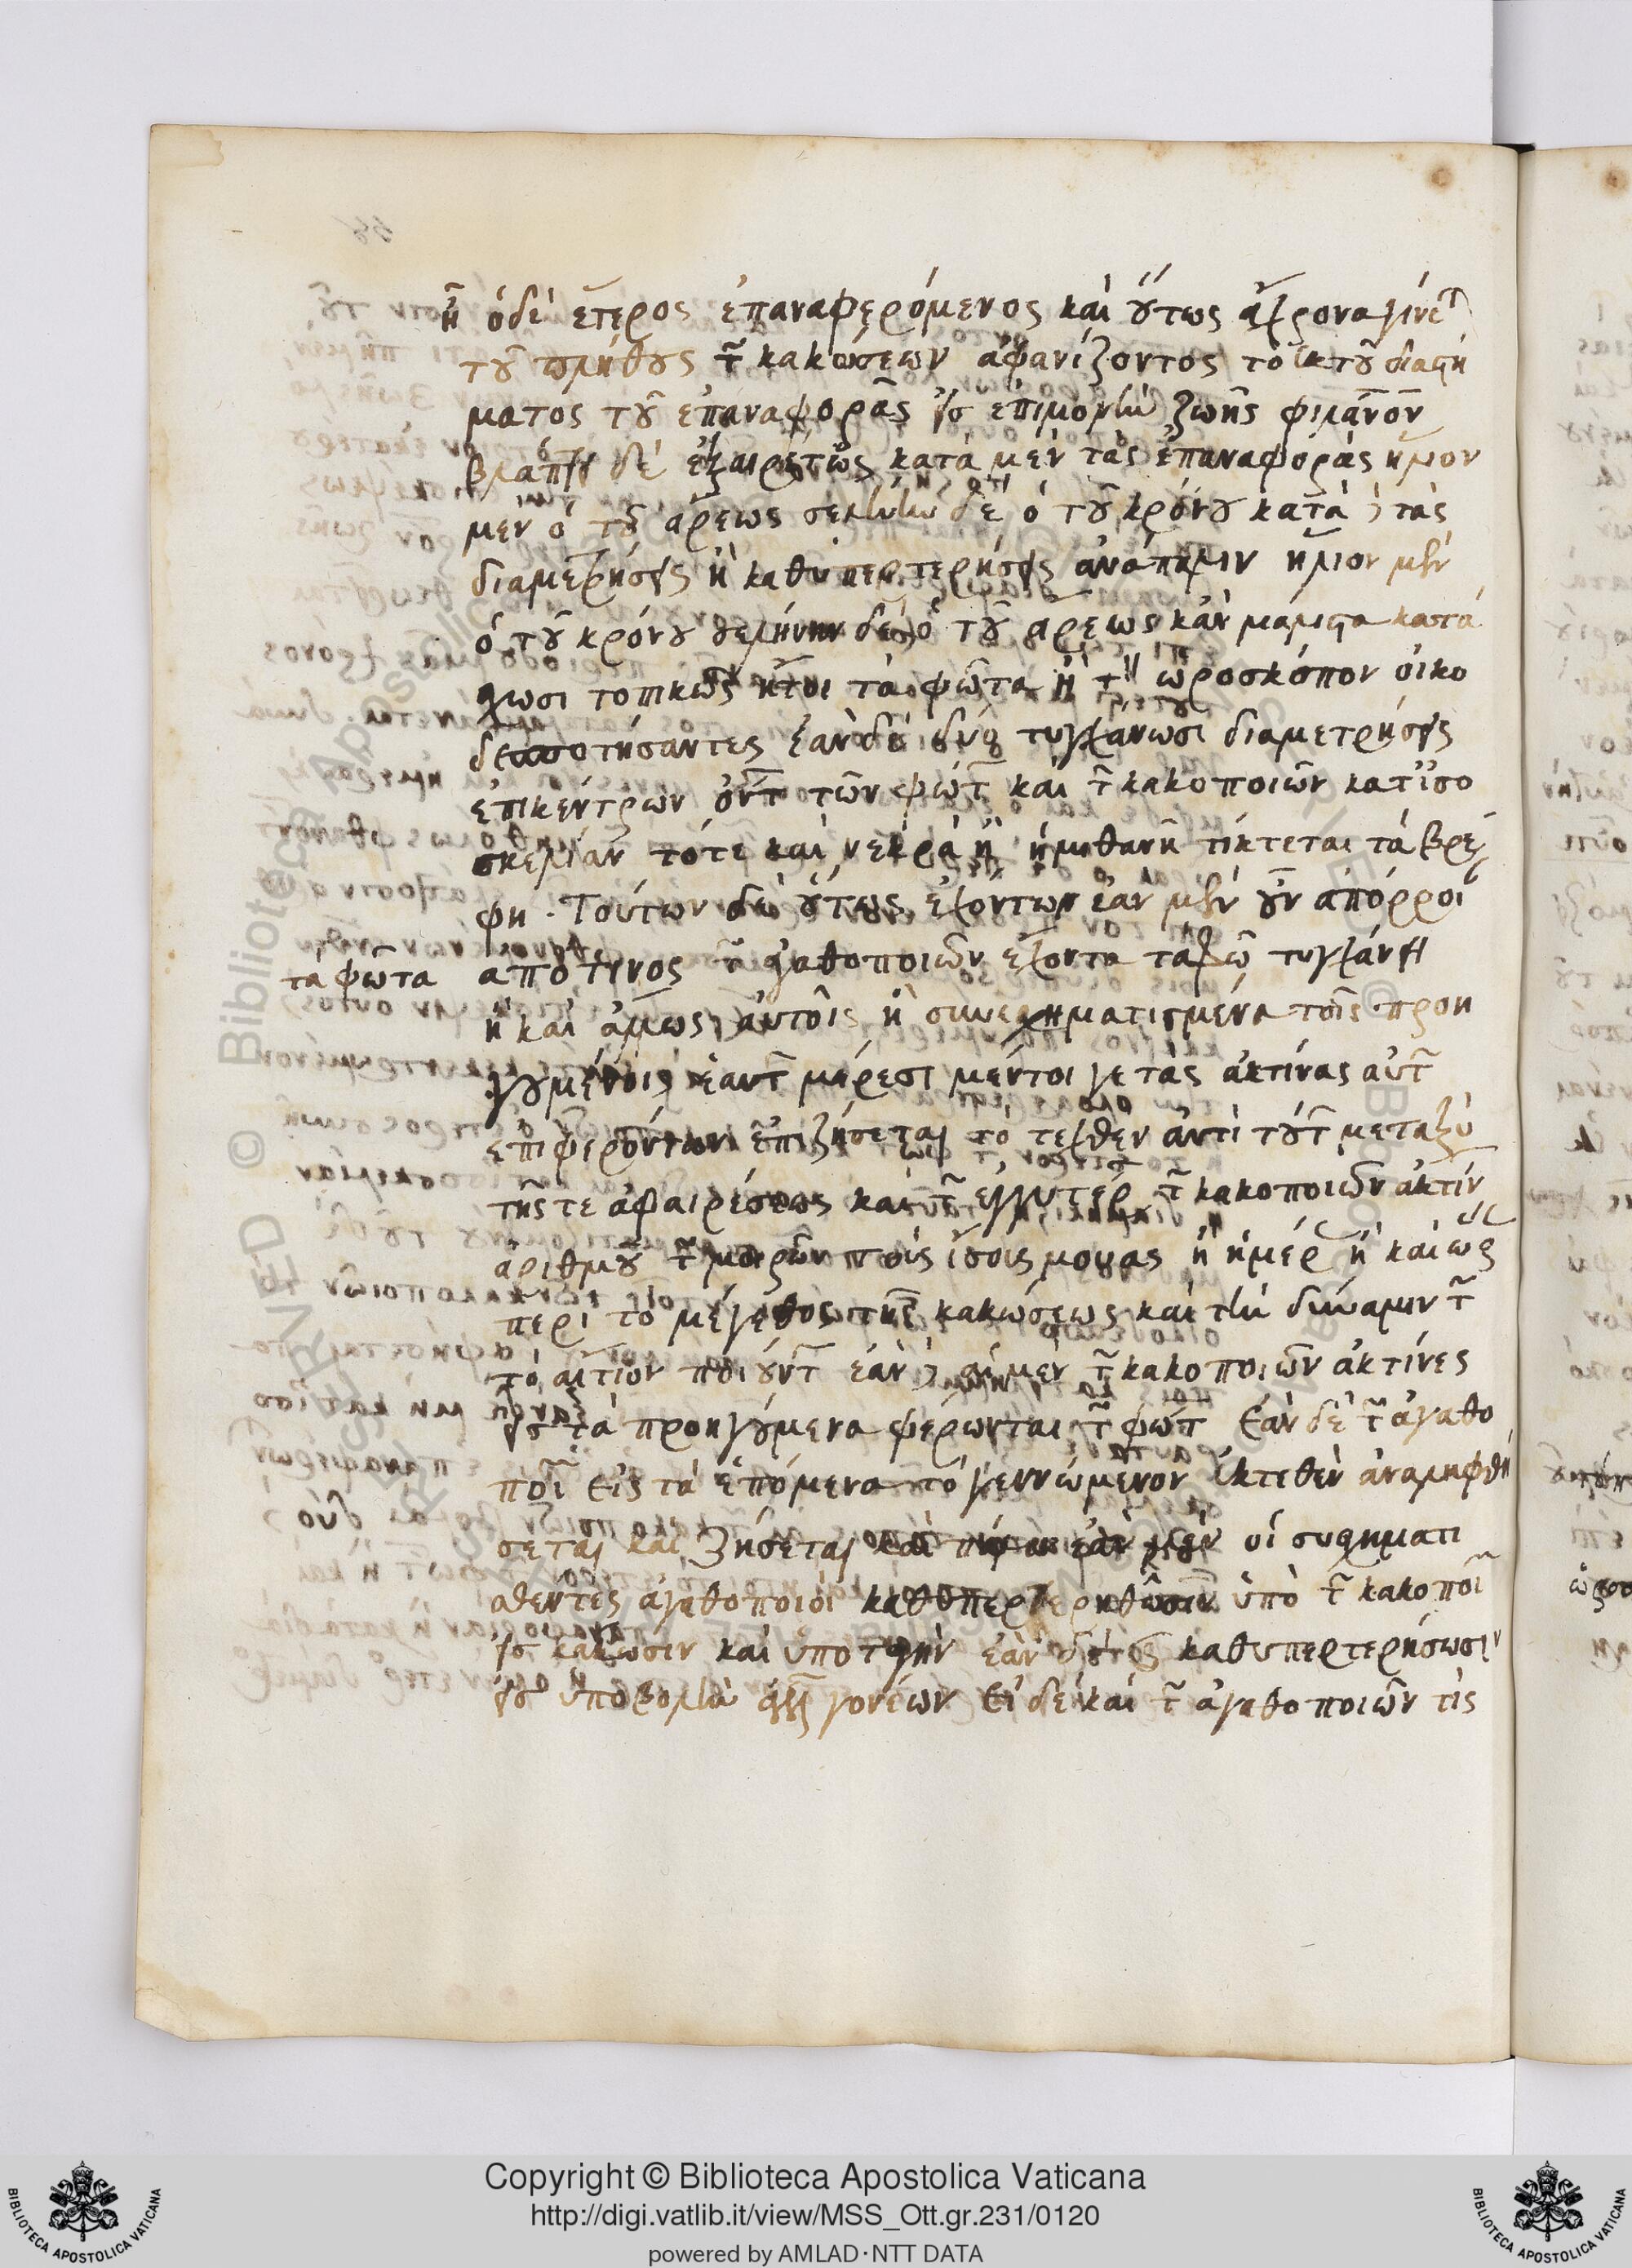 ἢ ὁ δὲ ἕτερος ἐπαναφερόμενος καὶ ὅυτως ἄχρονα γίνετ
τοῦ πλήθους τ κακώσεων ἀφανίζοντος τὸ ἐκ τοῦ διαστή
ματος τοῦ ἐπαναφορᾶς εἰς ἐπιμονὴν ζωῆς φιλάνον
βλάπτει δὲ ἐξαιρέτως κατὰ μὲν τὰς ἐπαναφορὰς ἥλιον
μὲν ὁ τοῦ ἄρεως σελήνην δὲ ὁ τοῦ κρόνου κατὰ τὰς
διαμετρήσεις ἢ καθυπερτερήσεις ἀνάπαλιν ἥλιον μὲν
ὁ τοῦ κρόνου σελήνην δὲ ὁ τοῦ ἄρεως κἂν μάλιστα κατά
σχωσι τοπικῶς ἤτοι τὰ φῶτα ἢ τ ὡροσκόπον οἰκο
δεσποτήσαντες ἐὰν δὲ δύο τυγχάνωσι διαμετρήσεις
ἐπικέντρων ὄντ τῶν φώτ καὶ τ κακοποιῶν κατ ἰσο
σκελίαν τότε καὶ νεκρὰ ἢ ἡμιθανῆ τίκτεται τὰ βρέ
φη . Τούτων δὲ ὅυτως ἐχόντων ἐὰν μὲν οὖν ἀπόρροι
τὰ φῶτα ἀπό τινος τ ἀγαθοποιῶν ἔχοντα τὰ φῶ τυγχάνῃ
ἢ καὶ ἄλλως αὐτοῖς ἢ συνεσχηματισμένα τοῖς προη
γουμένοις ἑαυτ μέρεσι μέντοι γε τὰς ἀκτίνας αὐτ
ἐπιφερόντων ἐπιζήσεται τὸ τεχθὲν ἀντὶ τούτ μεταξὺ
τῆς τε ἀφαιρέσεως καὶ τ ἐγγυτέρ τ κακοποιῶν ἀκτίν
ἀριθμοῦ τ μοιρῶν τοῖς ἴσοις μῆνας ἢ ἡμέρ ἢ καὶ ὥρ
περὶ τὸ μέγεθος τῆς κακώσεως καὶ τὴν δύναμιν τ
τὸ αἴτιον ποιούντ ἐὰν αἱ μὲν τ κακοποιῶν ἀκτίνες
εἰς τὰ προηγούμενα φέρωνται τ φώτ ἐὰν δὲ τ ἀγαθο
ποι εἰς τὰ ἑπόμενα τὸ γεννώμενον ἐκτεθὲν ἀναληφθή
σεται καὶ ζήσεται οἱ συσχηματι
σθέντες ἀγαθοποιοὶ καθυπερτερηθῶσιν ὑπὸ τ κακοποι
εἰς κάκωσιν καὶ ὑποταγὴν ἐὰν δὲ καθυπερτερήσωσιν
εἰς ὑποβολὴν ἄλλ γονέων εἰ δὲ καὶ τ ἀγαθοποιῶν τὶς
Copyright © Biblioteca Apostolica Vaticana
http://digi.vatlib.it/view/MSS_Ott.gr.231/0120
powered by AMLAD·NTT DATA